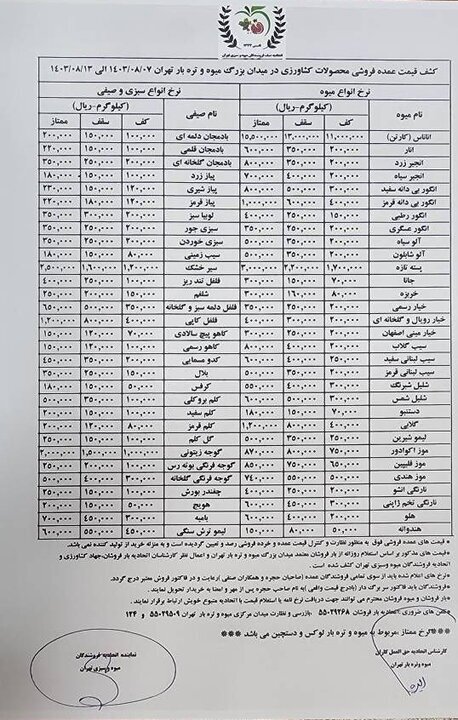 اتحادیه صنف فروشندگان میوه و سبزی تهران
کشف قیمت عمده فروشی محصولات کشاورزی در میدان بزرگ میوه و تره بار تهران ۱۴۰۳/۰۸/۰۷ الی ۱۴۰۳/۰۸/۱۳
نرخ انواع میوه نرخ انواع سبزی و صیفی
نام میوه (کیلوگرم-ریال) نام صیفی (کیلوگرم-ریال)
کف سقف ممتاز کف سقف ممتاز
آناناس (کارتن) ۱۱,۰۰۰,۰۰۰ ۱۳,۰۰۰,۰۰۰ ۱۵,۵۰۰,۰۰۰ بادمجان دلمه ای ۱۰۰,۰۰۰ ۱۵۰,۰۰۰ ۲۰۰,۰۰۰
انار ۲۰۰,۰۰۰ ۳۵۰,۰۰۰ ۶۰۰,۰۰۰ بادمجان قلمی ۱۰۰,۰۰۰ ۱۵۰,۰۰۰ ۲۲۰,۰۰۰
انجیر زرد ۲۰۰,۰۰۰ ۳۵۰,۰۰۰ ۸۰۰,۰۰۰ بادمجان گلخانه ای ۲۰۰,۰۰۰ ۲۵۰,۰۰۰ ۳۵۰,۰۰۰
انجیر سیاه ۲۰۰,۰۰۰ ۴۰۰,۰۰۰ ۷۰۰,۰۰۰ پیاز زرد ۱۰۰,۰۰۰ ۱۵۰,۰۰۰ ۱۸۰,۰۰۰
انگور بی دانه سفید ۳۰۰,۰۰۰ ۵۰۰,۰۰۰ ۸۰۰,۰۰۰ پیاز شیری ۱۲۰,۰۰۰ ۱۵۰,۰۰۰ ۲۳۰,۰۰۰
انگور بی دانه قرمز ۴۰۰,۰۰۰ ۶۰۰,۰۰۰ ۱,۰۰۰,۰۰۰ پیاز قرمز ۱۲۰,۰۰۰ ۱۸۰,۰۰۰ ۲۲۰,۰۰۰
انگور رطبی ۱۵۰,۰۰۰ ۲۰۰,۰۰۰ ۴۰۰,۰۰۰ لوبیا سبز ۲۰۰,۰۰۰ ۳۰۰,۰۰۰ ۳۵۰,۰۰۰
انگور عسگری ۲۰۰,۰۰۰ ۲۵۰,۰۰۰ سبزی جور ۲۰۰,۰۰۰ ۲۵۰,۰۰۰ ۳۵۰,۰۰۰
آلو سیاه ۲۰۰,۰۰۰ ۳۵۰,۰۰۰ ۵۰۰,۰۰۰ سبزی خوردن ۲۰۰,۰۰۰ ۲۵۰,۰۰۰ ۳۵۰,۰۰۰
آلو شابلون ۲۰۰,۰۰۰ ۳۵۰,۰۰۰ سیب زمینی ۸۰,۰۰۰ ۱۵۰,۰۰۰ ۱۸۰,۰۰۰
پسته تازه ۱,۷۰۰,۰۰۰ ۲,۲۰۰,۰۰۰ ۳,۰۰۰,۰۰۰ سیر خشک ۱,۲۰۰,۰۰۰ ۱,۶۰۰,۰۰۰ ۲,۵۰۰,۰۰۰
جانا ۷۰,۰۰۰ ۱۵۰,۰۰۰ ۳۰۰,۰۰۰ فلفل تند ریز ۱۰۰,۰۰۰ ۲۵۰,۰۰۰ ۴۰۰,۰۰۰
خربزه ۸۰,۰۰۰ ۱۶۰,۰۰۰ ۳۰۰,۰۰۰ شلغم ۱۵۰,۰۰۰ ۲۰۰,۰۰۰ ۲۵۰,۰۰۰
خیار رسمی ۲۰۰,۰۰۰ ۲۵۰,۰۰۰ ۳۵۰,۰۰۰ فلفل دلمه سبز و گلخانه ۳۵۰,۰۰۰ ۵۰۰,۰۰۰ ۶۵۰,۰۰۰
خیار رویال و گلخانه ای ۲۰۰,۰۰۰ ۳۰۰,۰۰۰ ۴۰۰,۰۰۰ فلفل کاپی ۴۰۰,۰۰۰ ۸۰۰,۰۰۰ ۱,۲۰۰,۰۰۰
خیار مینی اصفهان ۲۰۰,۰۰۰ ۲۵۰,۰۰۰ ۳۰۰,۰۰۰ کاهو پیچ سالادی ۷۰,۰۰۰ ۱۲۰,۰۰۰ ۱۵۰,۰۰۰
سیب گلاب ۲۰۰,۰۰۰ ۳۵۰,۰۰۰ کاهو رسمی ۱۰۰,۰۰۰ ۱۵۰,۰۰۰
سیب لبنانی سفید ۲۵۰,۰۰۰ ۴۰۰,۰۰۰ ۶۰۰,۰۰۰ کدو مسمایی ۲۰۰,۰۰۰ ۳۵۰,۰۰۰ ۴۵۰,۰۰۰
سیب لبنانی قرمز ۲۰۰,۰۰۰ ۳۵۰,۰۰۰ بلال ۱۵۰,۰۰۰ ۲۰۰,۰۰۰ ۳۵۰,۰۰۰
شلیل شبرنگ ۳۰۰,۰۰۰ ۴۰۰,۰۰۰ ۵۵۰,۰۰۰ کرفس ۵۰,۰۰۰ ۱۰۰,۰۰۰ ۱۸۰,۰۰۰
شلیل شمس ۳۰۰,۰۰۰ ۵۰۰,۰۰۰ ۶۰۰,۰۰۰ کلم بروکلی ۱۰۰,۰۰۰ ۳۵۰,۰۰۰ ۵۰۰,۰۰۰
دستنبو ۷۰,۰۰۰ ۱۵۰,۰۰۰ ۱۸۰,۰۰۰ کلم سفید ۵۰,۰۰۰ ۱۰۰,۰۰۰
گلابی ۴۰۰,۰۰۰ ۸۰۰,۰۰۰ ۱,۲۰۰,۰۰۰ کلم قرمز ۸۰,۰۰۰ ۱۲۰,۰۰۰ ۲۰۰,۰۰۰
لیمو شیرین ۲۵۰,۰۰۰ ۳۵۰,۰۰۰ ۵۰۰,۰۰۰ گل کلم ۱۰۰,۰۰۰ ۱۵۰,۰۰۰ ۲۵۰,۰۰۰
موز اکوادور ۷۵۰,۰۰۰ ۸۰۰,۰۰۰ ۸۷۰,۰۰۰ گوجه زیتونی ۱,۰۰۰,۰۰۰ ۱,۵۰۰,۰۰۰ ۲,۰۰۰,۰۰۰
موز فلیپین ۶۵۰,۰۰۰ ۷۵۰,۰۰۰ ۸۵۰,۰۰۰ گوجه فرنگی بوته رس ۱۰۰,۰۰۰ ۲۰۰,۰۰۰ ۲۵۰,۰۰۰
موز هندی ۵۰۰,۰۰۰ ۵۵۰,۰۰۰ ۷۴۰,۰۰۰ گوجه فرنگی گلخانه ۳۰۰,۰۰۰ ۴۰۰,۰۰۰ ۵۰۰,۰۰۰
نارنگی انشو ۲۰۰,۰۰۰ ۴۰۰,۰۰۰ چغندر بورش ۱۰۰,۰۰۰ ۱۵۰,۰۰۰ ۲۵۰,۰۰۰
نارنگی تخم ژاپنی ۲۰۰,۰۰۰ ۴۰۰,۰۰۰ ۶۰۰,۰۰۰ هویج ۵۰,۰۰۰ ۱۵۰,۰۰۰ ۲۰۰,۰۰۰
هلو ۲۰۰,۰۰۰ ۴۰۰,۰۰۰ بامیه ۳۰۰,۰۰۰ ۴۵۰,۰۰۰ ۶۰۰,۰۰۰
هندوانه ۵۰,۰۰۰ ۸۰,۰۰۰ ۱۵۰,۰۰۰ لیمو ترش سنگی ۴۵۰,۰۰۰ ۵۵۰,۰۰۰ ۷۰۰,۰۰۰
* قیمت های عمده فروشی فوق به منظور نظارت و کنترل قیمت عمده و خرده فروشی رصد و تعیین گردیده است و به منزله خرید از تولید کننده نمی باشد.
* قیمت های مذکور بر اساس استعلام روزانه از بار فروشان معتمد میدان بزرگ میوه و تره بار تهران و اعمال نظر کارشناسان اتحادیه بار فروشان،جهاد کشاورزی و اتحادیه فروشندگان میوه و سبزی تهران کشف شده است.
*نرخ های اعلام شده باید از سوی تمامی فروشندگان عمده (صاحبین حجره و همکاران صنفی )رعایت و در فاکتور فروش معتبر درج گردد.
*فروشندگان باید فاکتور سر برگ دار (بادرج قیمت واقعی )به نام صاحب حجره پس از مهر و امضا به خریدار تحویل نمایند.
*بار فروشان و میوه فروشان محترم می توانند جهت دریافت نرخ نامه یا استعلام قیمت با اتحادیه متبوع خویش ارتباط برقرار نمایند.
*تلفن های ضروری اتحادیه بار فروشان ۵۵۰۲۹۲۶۸ ،بازرسی و نظارت میدان مرکزی میوه و تره بار تهران ۵۵۰۲۹۵۰۹ و ۱۲۴
***نرخ ممتاز ،مربوط به میوه و تره بار لوکس و دستچین می باشد ***
کارشناس اتحادیه حق العمل کاران
میوه و تره بار تهران
نماینده اتحادیه فروشندگان
میوه و سبزی تهران